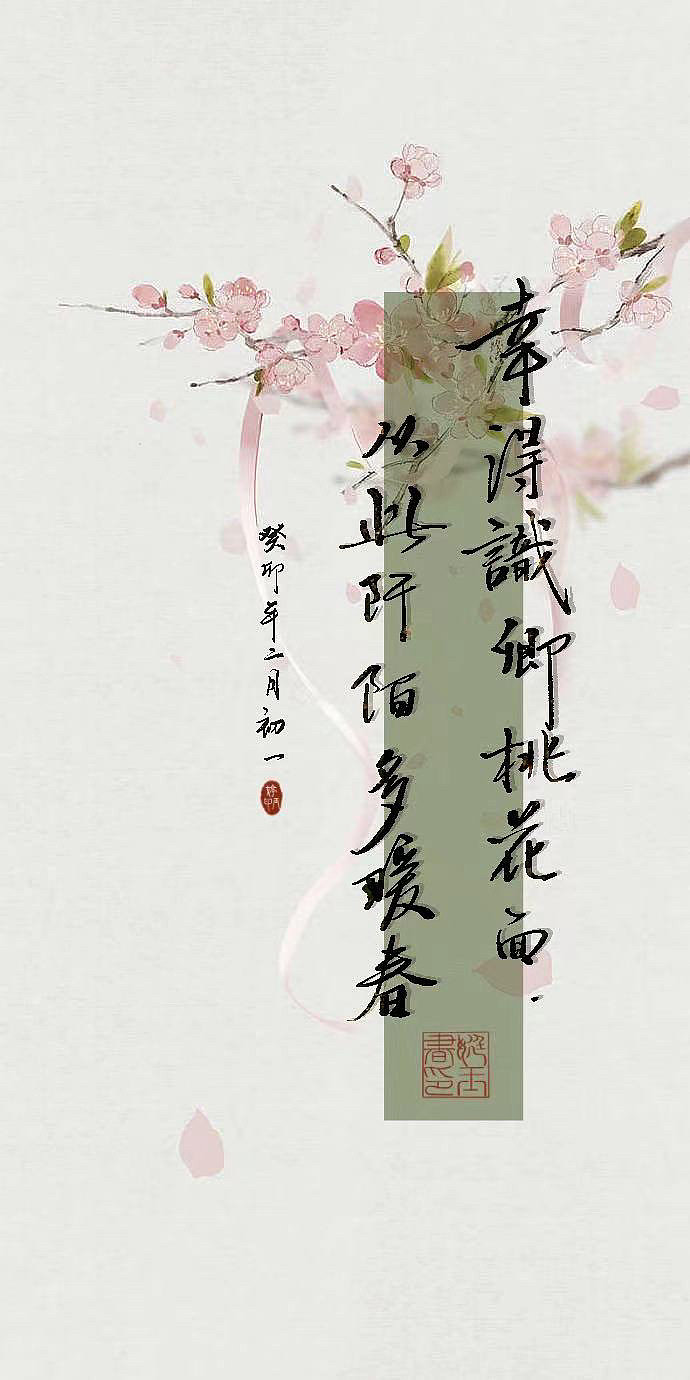 幸得識卿桃花面.
从此阡陌多暖春
癸卯年二月初一